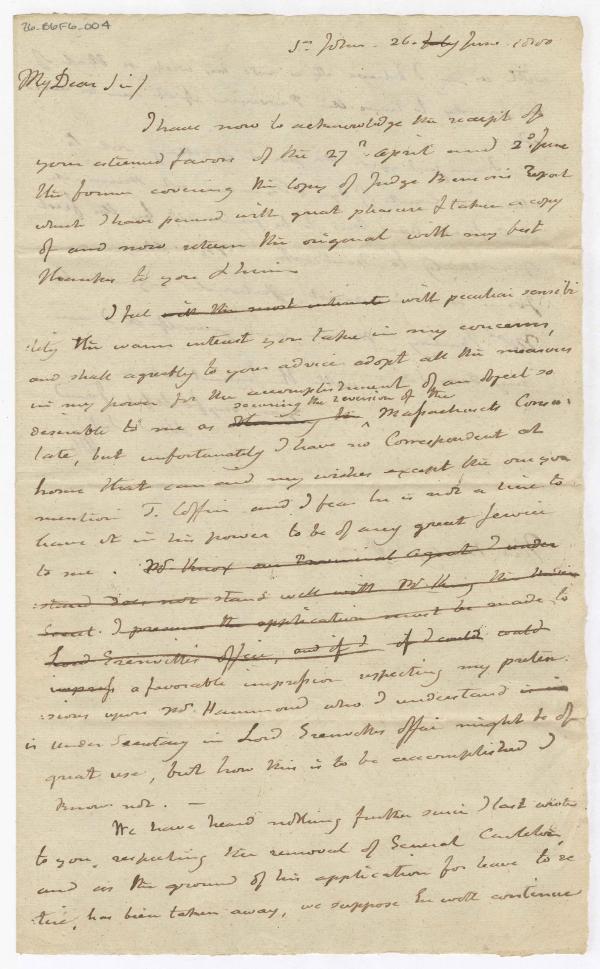 76-B6F6-004
St. John - 26. July June 1800
My Dear Sir/
I have now to acknowledge the receipt of
your esteemed favors of the 27th April and 2d. June
the former covering the copy of Judge Bensons Report
which I have perused with great pleasure & taken a copy
of and now return the original with my best
thanks to you & him
I feel with the most intimate with peculiar sensibi
:lity the warm interest you take in my concerns,
and shall agreably to your advice adopt all the measures
in my power for the accomplishment of an object so
securing the reversion of the
desirable to me as Massachusets Consu:
late, but unfortunately I have no Correspondent at
home that can aid my wishes except the one you
mention T. Coffin and I fear he is not a line to
have it in his power to be of any great Service
to me. Mr. Knox our Provincial Agent I under
stand does not stand well with Mr King the Under
Secret. I presume the application must be made to
Lord Grenvilles office, and if I if I could could
impress a favorable impression respecting my preten
:sions upon Mr Hammond who I understand is in
is under Secretary in Lord Grenvilles office might be of
great use, but how this is to be accomplished I
know not. —
We have heard nothing further since I last wrote
to you, respecting the removal of General Carleton,
and as the ground of his application for leave to re
:tire, has been taken away, we suppose he will continue